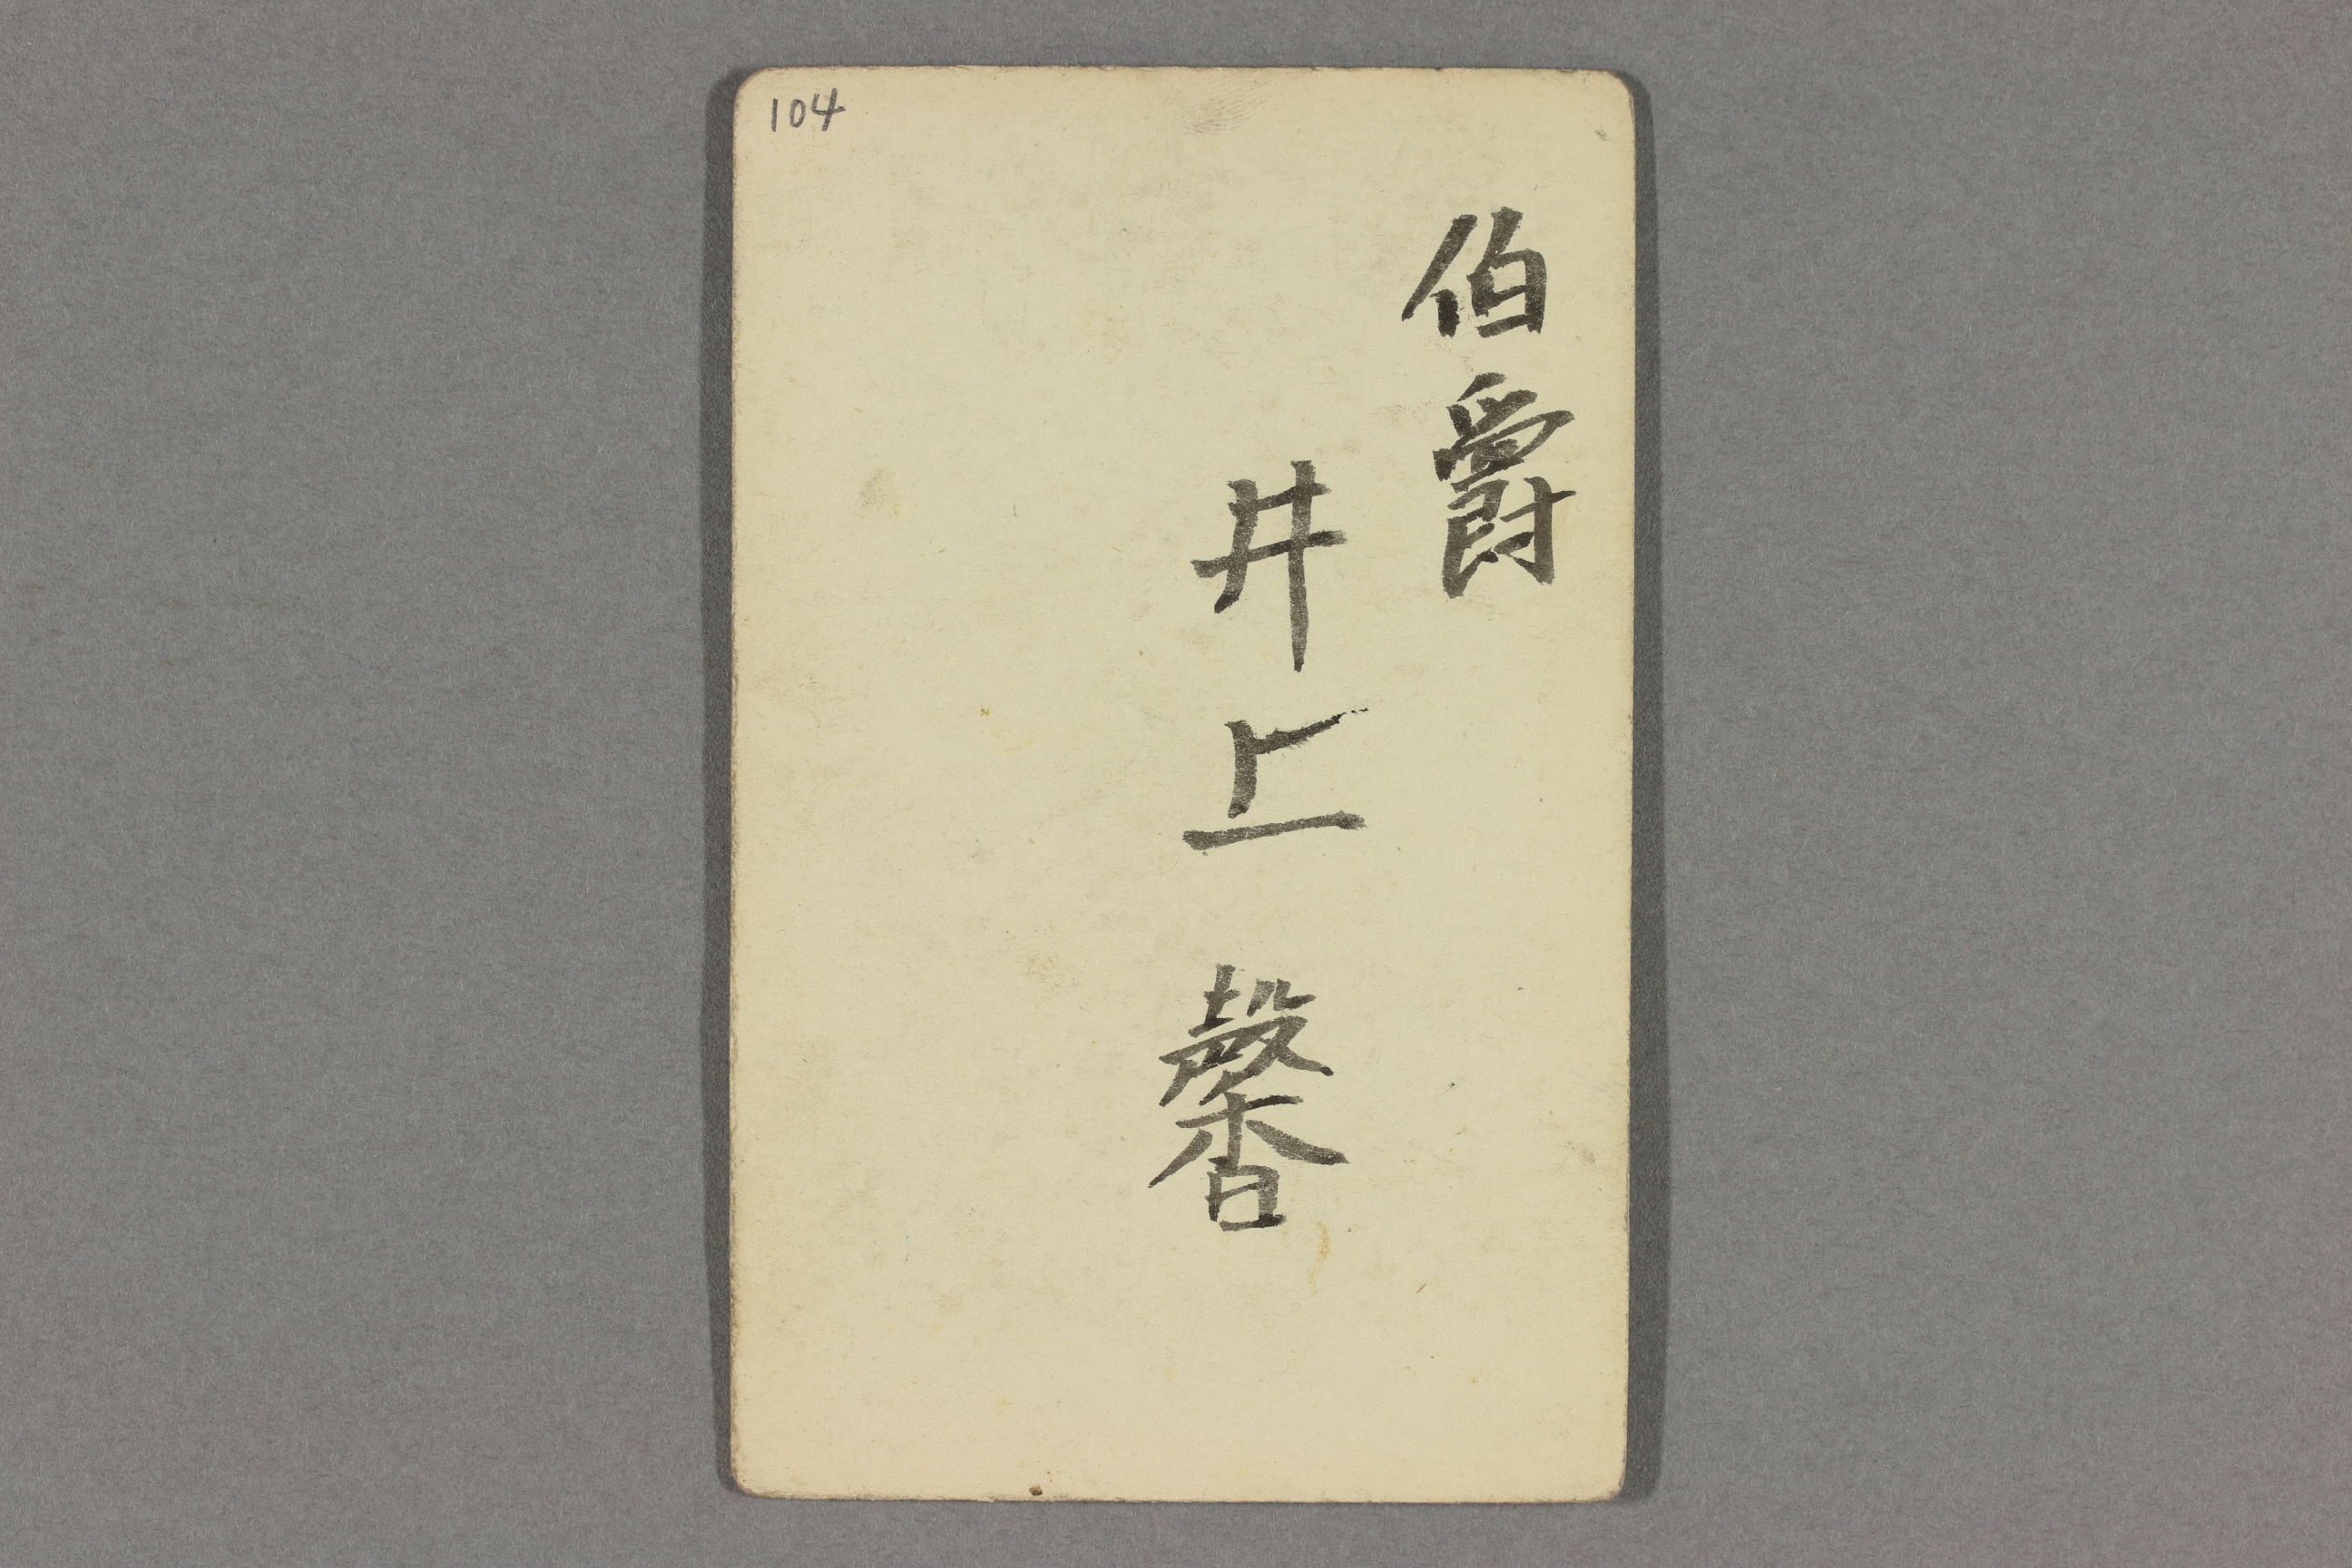 104
伯爵
井上馨